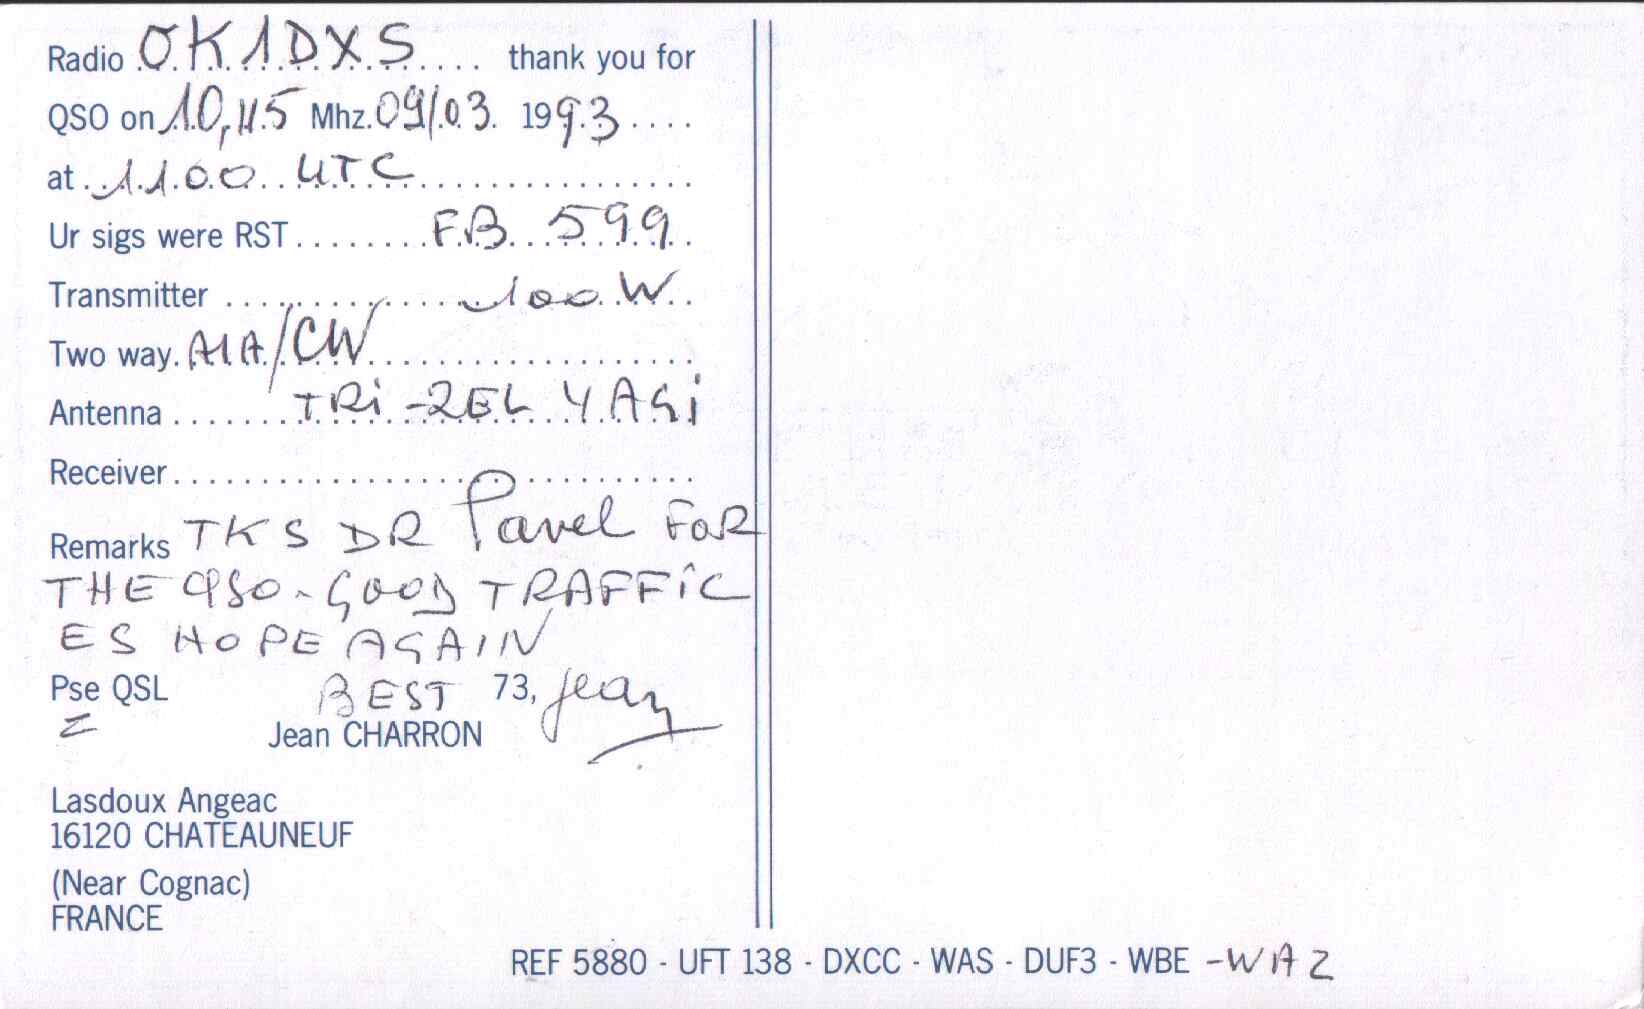 Radio OK1DXS thank you for
QSO on 10,115 Mhz. 09/03. 1993
at 1100 UTC
Ur sigs were RST FB 599
Transmitter 100 W
Two way. A1A/CW
Antenna TRi-2EL YAGi
Receiver
Remarks TKS DR Pavel FOR
THE QSO - GOOD TRAFFiC
ES HOPE AGAIN
Pse QSL BEST 73, Jean
Jean CHARRON
Lasdoux Angeac
16120 CHATEAUNEUF
(Near Cognac)
FRANCE
REF 5880 - UFT 138 - DXCC - WAS - DUF3 - WBE - WAZ